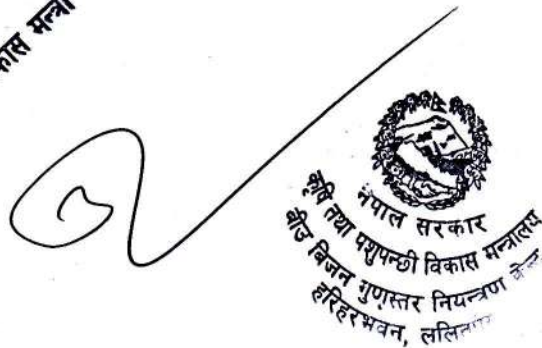 कास मन्त्रा
नेपाल सरकार
कृषि तथा पशुपन्छी विकास मन्त्रालय
बीउ बिजन गुणस्तर नियन्त्रण
हरिहरभवन,